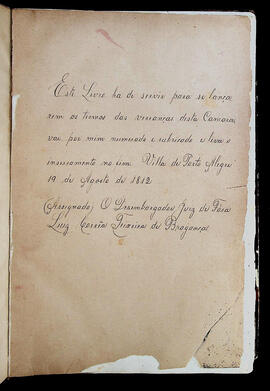 Este Livro ha de servir para se lança-
rem os termos das vereanças desta Camara,
vae por mim numerado e rubricado e leva o
encerramento no fim. Villa de Porto Alegre
19 de Agosto de 1812
(Assignado) O Desembargador Juiz de Fóra
Luiz Corrêa Teixeira de Bragança